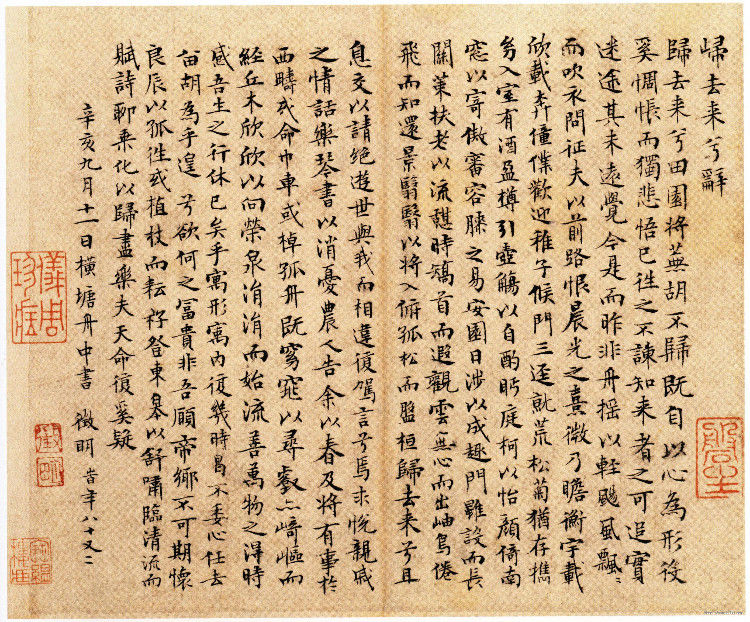 歸去来兮辭
歸去来兮田園将蕪胡不歸既自以心為形役
奚惆悵而獨悲悟已往之不諫知来者之可追實
迷途其未遠覺今是而昨非舟摇以軽颺風飄〻
而吹衣問征夫以前路恨晨光之熹微乃瞻衡宇載
欣載奔僮僕歡迎稚子候門三逕就荒松菊猶存携
幼入室有酒盈樽引壺觴以自酌眄庭柯以怡顔倚南
窓以寄傲審容膝之易安園日涉以成趣門雖設而長
關策扶老以流憩時矯首而遐觀雲無心而出岫鳥倦
飛而知還景翳翳以将入俯孤松而盤桓歸去来兮且
息交以請絶遊世與我而相違復駕言兮焉求悦親戚
之情話樂琴書以消憂農人告余以春及将有事於
西疇或命巾車或棹孤舟既窈窕以尋壑亦崎嶇而
經丘木欣欣以向榮泉涓涓而始流善萬物之得時
感吾生之行休已矣乎寓形寓内復幾時曷不委心任去
留胡為乎遑兮欲何之冨貴非吾願帝鄉不可期懷
良辰以孤往或植杖而耘耔登東皋以舒嘯臨清流而
賦詩聊乗化以歸盡樂夫天命復奚疑
辛亥九月十一日横塘舟中書 徵明 時年八十又二
儀周珍藏
徵明